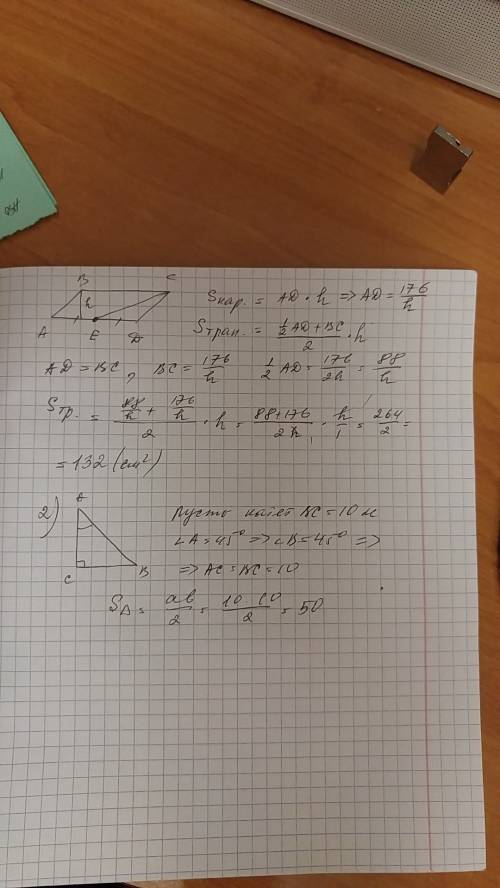 B C
h
A E D
Sпар. = AD · h => AD = 176/h
Sтрап. = (1/2 AD + BC)/2 · h
AD = BC, BC = 176/h 1/2 AD = 176/2h = 88/h
Sтр. = (88/h + 176/h)/2 · h = (88+176)/2h · h/1 = 264/2 =
= 132 (см²)
2) A
C B
пусть катет BC = 10 м
∠A = 45° => ∠B = 45° =>
=> AC = BC = 10
S△ = ab/2 = 10·10/2 = 50